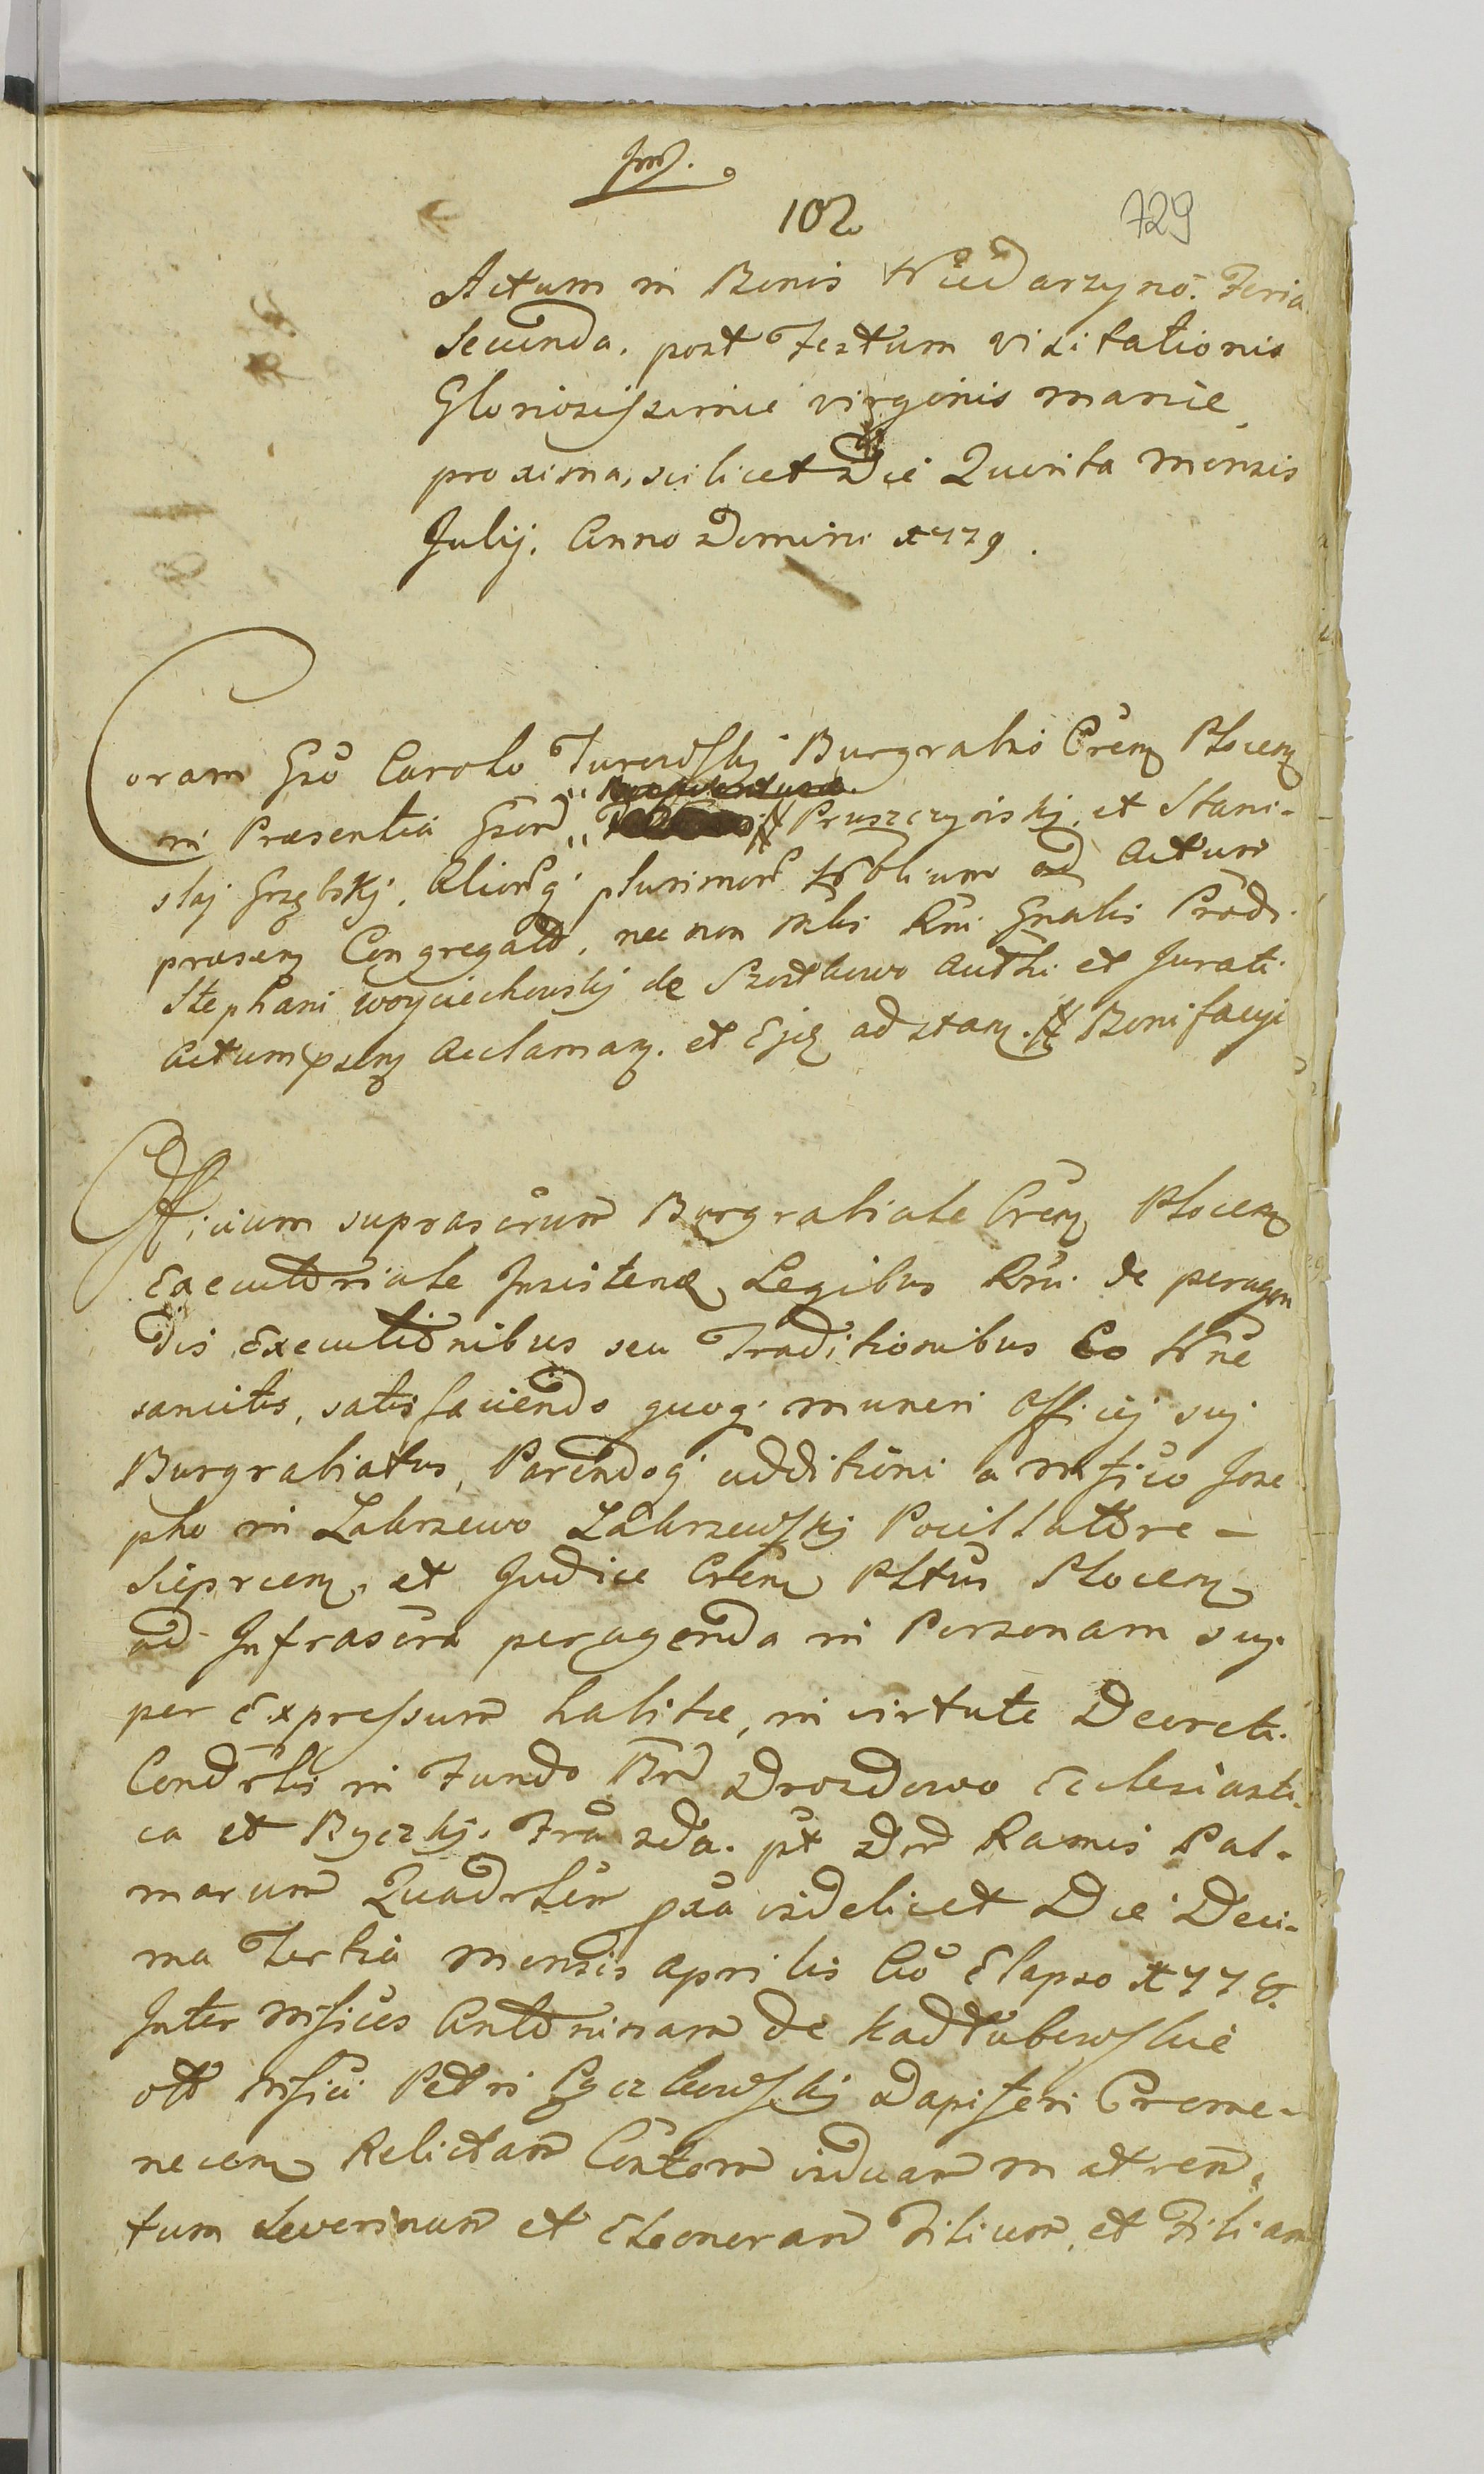 102
729
Actum in Bonis Niedarzyno. Feria
Secunda, post Festum visitationis
Gloriosissimæ virginis mariæ
proxima, scilicet Die Quinta mensis
Julij, Anno Domini 1779.
Coram Gso Carolo Turowskj Burgrabio Crem Plocen
in Præsentia Gsor Pruszczyńskj, et Stani-
slaj Grzębskj, Aliorq plurimor Nobilium ad Actum
præsen Congregator, nec non mlis Rni Gnalis Prodi.
Stephani woyciechowskj de Szostkowo Authi et Jurati
Actum psen Acclaman. et Ejq adstan. # Bonifacyi
Officium suprascrum Burgrabiale Cren Plocen
Executoriale Insistendo Legibus Rni. de peragen
dis Executionibus seu Traditionibus Co Nne
sancitis, satisfaciendo quoq muneri Officij suj
Burgrabiatus, Parendoq additioni a mfico Jose
pho in Zakrzewo Zakrzewskj Pocillatore -
Sieprcen, et Judice Crem Pltus Plocen
ad Infrascra peragenda in Personam suj
per Expressum habitæ, in virtute Decreti.
Condrlis in Fundo Bnr Drozdowo Ecclesiasti-
ca et Ryczkj. Fra 2da. pt Dnr Ramis Pal-
marum Quadrlem pxa videlicet Die Deci-
ma Tertia mensis Aprilis Ao Elapso 1778.
Inter mficos Antoninam de Kadłubowskie
olt mfici Petri Pgczkowskj Dapiferi Creme-
necen Relictam Contem viduam matrem,
tum Severinum et Eleonoram Filium, et Filiam